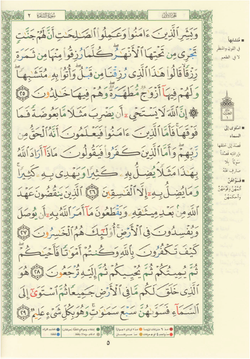 وَبَشِّرِ الَّذِينَ ءَامَنُوا وَعَمِلُوا الصَّالِحَاتِ أَنَّ لَهُمْ جَنَّاتٍ
تَجْرِى مِن تَحْتِهَا الْأَنْهَارُ كُلَّمَا رُزِقُوا مِنْهَا مِن ثَمَرَةٍ
رِّزْقًا قَالُوا هَٰذَا الَّذِى رُزِقْنَا مِن قَبْلُ وَأُتُوا بِهِ مُتَشَابِهًا
وَلَهُمْ فِيهَا أَزْوَاجٌ مُّطَهَّرَةٌ وَهُمْ فِيهَا خَالِدُونَ ٢٥
إِنَّ اللَّهَ لَا يَسْتَحْىِ أَن يَضْرِبَ مَثَلًا مَّا بَعُوضَةً فَمَا
فَوْقَهَا فَأَمَّا الَّذِينَ ءَامَنُوا فَيَعْلَمُونَ أَنَّهُ الْحَقُّ مِن
رَّبِّهِمْ وَأَمَّا الَّذِينَ كَفَرُوا فَيَقُولُونَ مَاذَا أَرَادَ اللَّهُ
بِهَٰذَا مَثَلًا يُضِلُّ بِهِ كَثِيرًا وَيَهْدِى بِهِ كَثِيرًا
وَمَا يُضِلُّ بِهِ إِلَّا الْفَاسِقِينَ ٢٦ الَّذِينَ يَنقُضُونَ عَهْدَ
اللَّهِ مِن بَعْدِ مِيثَاقِهِ وَيَقْطَعُونَ مَا أَمَرَ اللَّهُ بِهِ أَن يُوصَلَ
وَيُفْسِدُونَ فِى الْأَرْضِ أُولَٰئِكَ هُمُ الْخَاسِرُونَ ٢٧
كَيْفَ تَكْفُرُونَ بِاللَّهِ وَكُنتُمْ أَمْوَاتًا فَأَحْيَاكُمْ
ثُمَّ يُمِيتُكُمْ ثُمَّ يُحْيِيكُمْ ثُمَّ إِلَيْهِ تُرْجَعُونَ ٢٨ هُوَ
الَّذِى خَلَقَ لَكُم مَّا فِى الْأَرْضِ جَمِيعًا ثُمَّ اسْتَوَىٰ إِلَى
السَّمَاءِ فَسَوَّاهُنَّ سَبْعَ سَمَاوَاتٍ وَهُوَ بِكُلِّ شَىْءٍ عَلِيمٌ ٢٩
٥